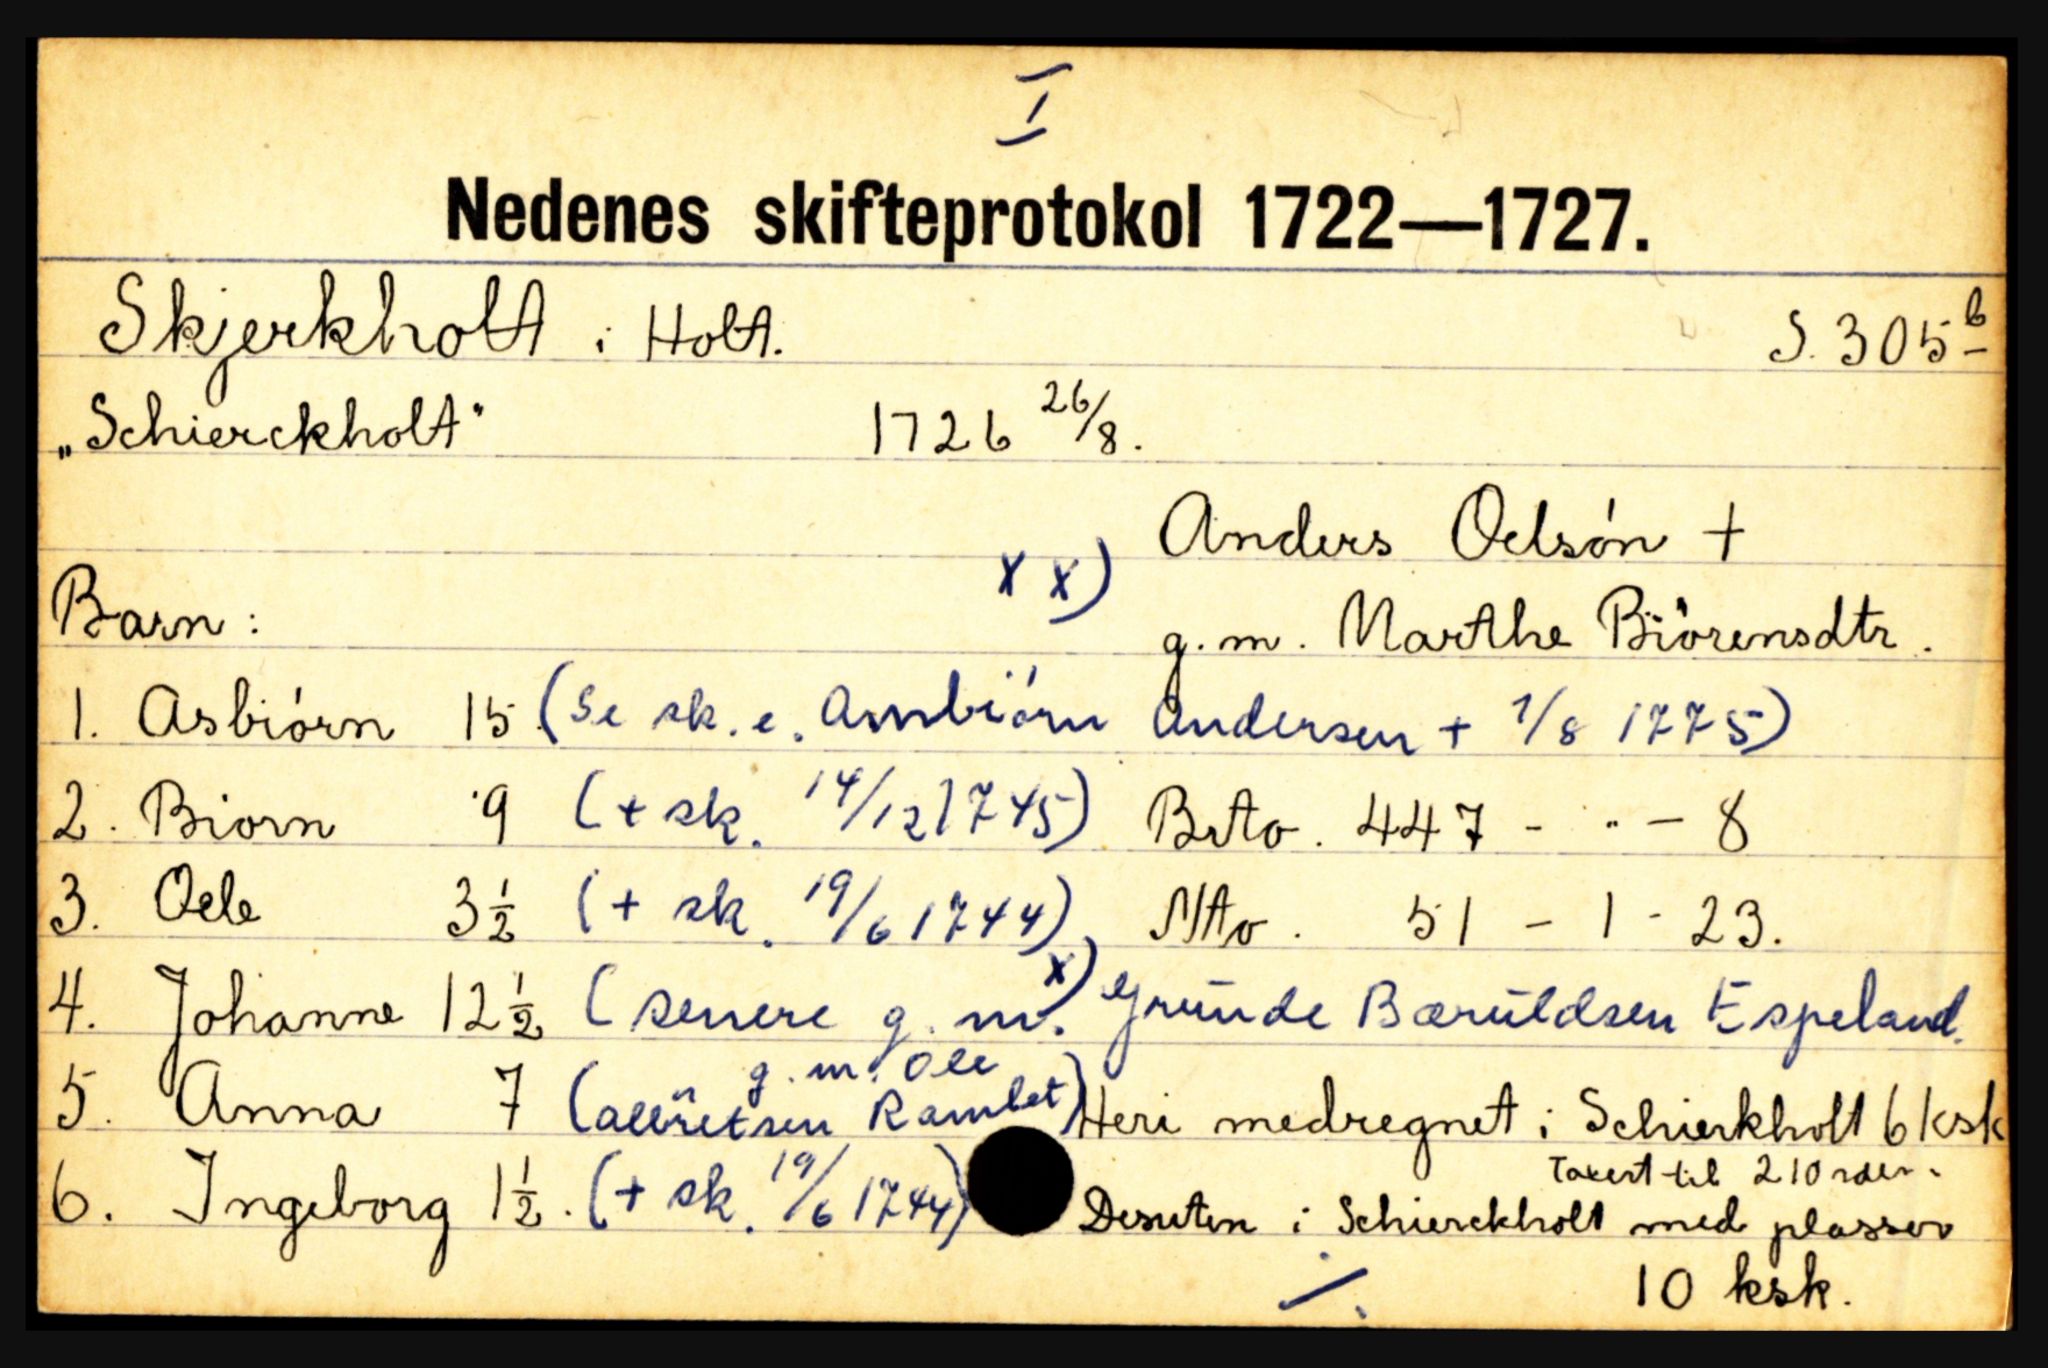 I
Nedenes skifteprotokol 1722—1727.
Skjerkholt i Holt. S. 305 b
„Schierckholt" 1726 26/8.
Anders Oelsón +
Barn: x x) g.m. Marthe Biörensdtr.
1. Asbiórn 15 (Se sk. e. Ambiórn Andersen + 1/8 1775)
2. Biorn 9 (+ sk. 14/12 1745) Btto. 447 - " - 8
3. Oele 3½ (+ sk. 19/6 1744) Ntto. 51 - 1 - 23.
4. Johanne 12½ (senere g. m. x) Grunde Bæruldsen Espeland.
g. m. Ole
5. Anna 7 (Allŭretsen Ramlet) Heri medregnet i Schierkholt 6 ksk
Taxert til 210 rdlr.
6. Ingeborg 1½. (+ sk. 19/6 1744) Desuten i Schierckholt med plasser
10 ksk.
./.